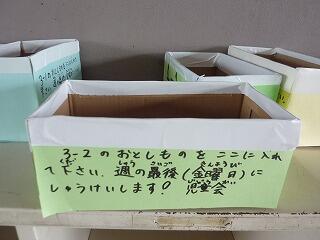 3-2のおとしものをここに入れ
て下さい。週の最後(金曜日)に
しゅうけいします! 児童会